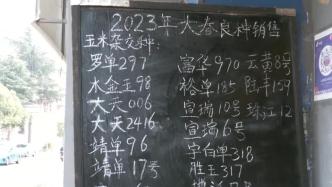 2023年大春良种销售
玉米杂交种:
罗单297 富华970 云黄8号
水金玉98 裕单185 陆丰159
大天006 宣瑞10号 珠江12
大天2416 宣瑞6号
靖单96 宇白单318
靖单17号 胜玉317